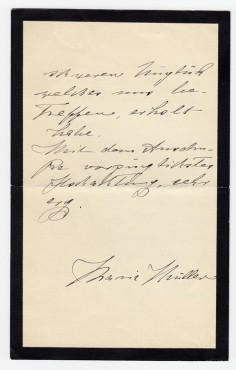 schweren Unglück
welches uns be-
treffen, erhalt
habe.
Mit dem Ausdru-
cke vorzüglichster
Hochachtung, sehr
erg.
Marie Müller